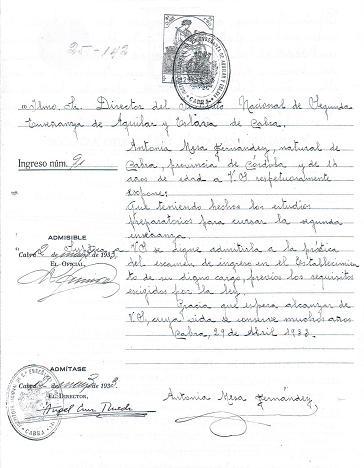 25-142
Ilmo. Sr. Director del Instituto Nacional de Segunda
Enseñanza de Aguilar y Eslava de Cabra.
Antonia Mesa Fernández, natural de
Cabra, provincia de Córdoba y de 14
años de edad a V.S. respetuosamente
expone:
Ingreso núm. 91
Que teniendo hechos los estudios
preparatorios para cursar la segunda
enseñanza.
Suplica a
V.S. se digne admitirla a la práctica
del examen de ingreso en el Establecimiento
de su digno cargo, previos los requisitos
exigidos por la ley.
ADMISIBLE
Cabra 2 de mayo de 1933
EL OFICIAL
Gracia que espera alcanzar de
V.S., cuya vida se conserve muchos años
Cabra, 29 de Abril 1933.
ADMÍTASE
Cabra de mayo de 1933.
EL DIRECTOR,
Angel Cruz Rueda
Antonia Mesa Fernández
CABRA